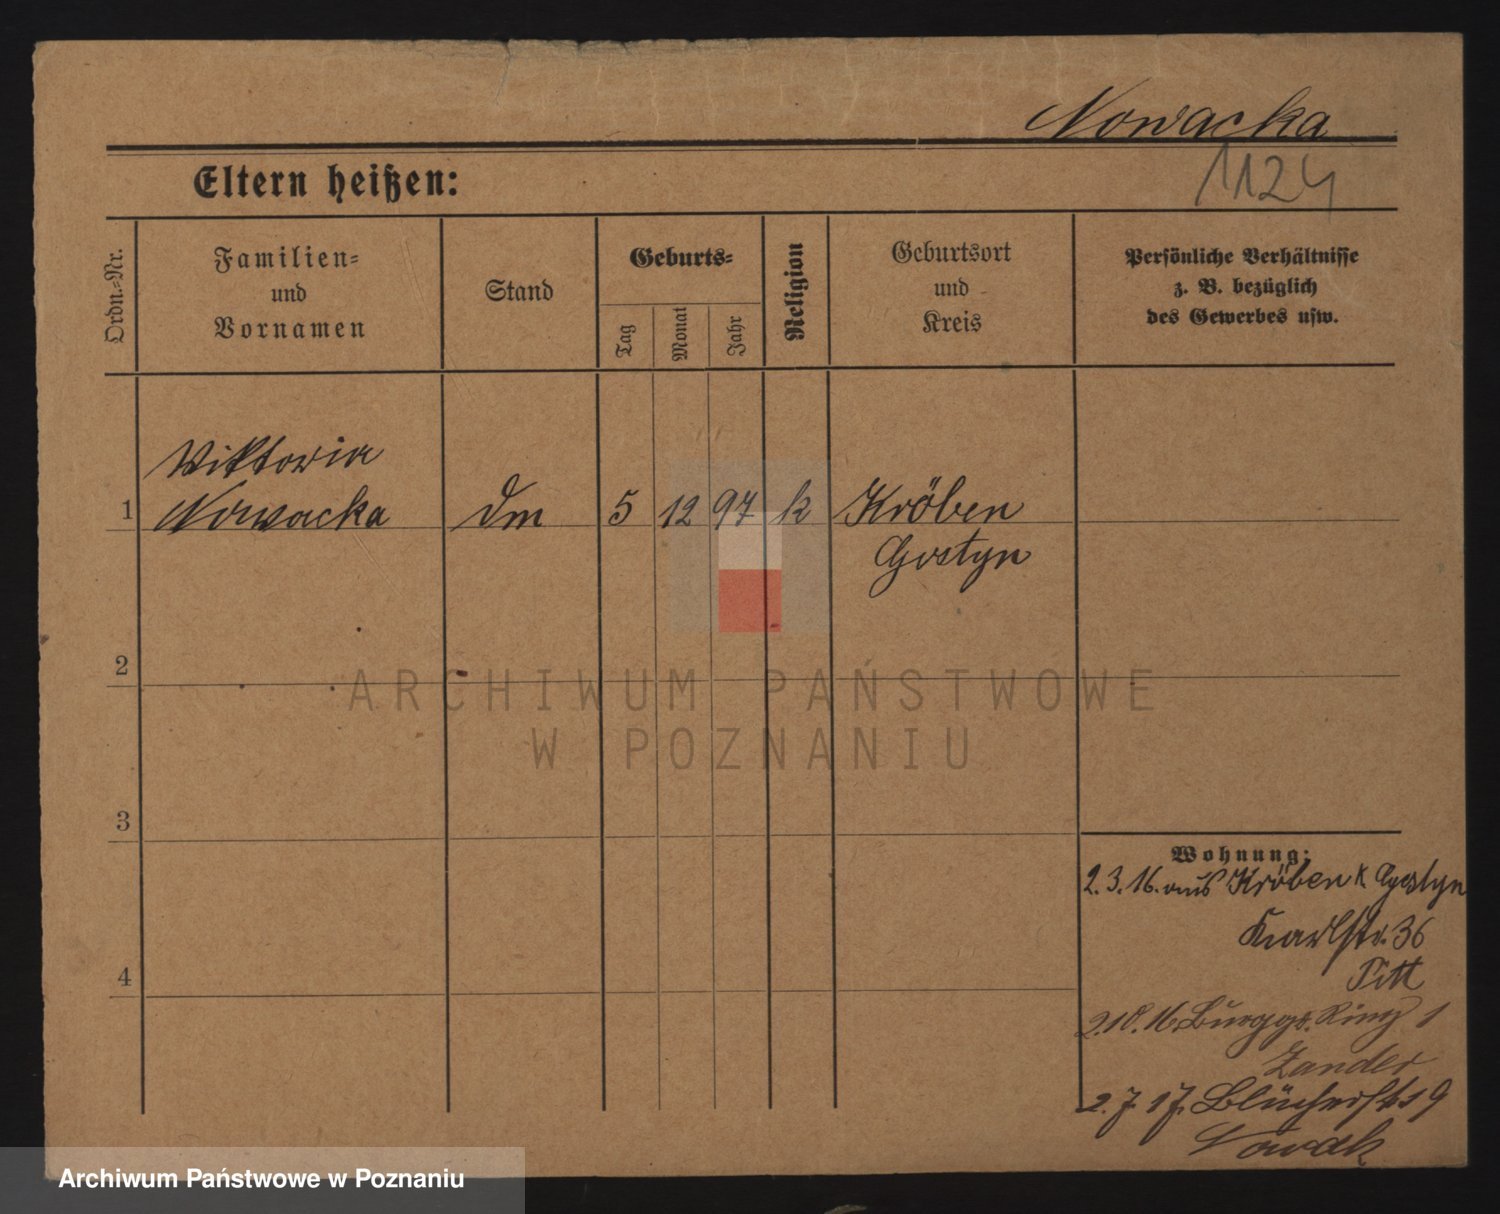 Nowacka
1124
Eltern heißen:
Ordn.-Nr.
Familien-
und
Vornamen
Stand
Geburts-
Tag
Monat
Jahr
Religion
Geburtsort
und
Kreis
Persönliche Verhältnisse
z. B. bezüglich
des Gewerbes usw.
Viktoria
1 Nowacka Dm 5 12 97 k Kröben
Gostyn
2
ARCHIWUM PAŃSTWOWE
W POZNANIU
3
Wohnung:
2.3.16. aus Kröben K Gostyn
Karlstr. 36
Pitt
4
2.10.16. Burggr. Ring 1
Zander
2.7.17. Blücherstr 19
Nowak
Archiwum Państwowe w Poznaniu